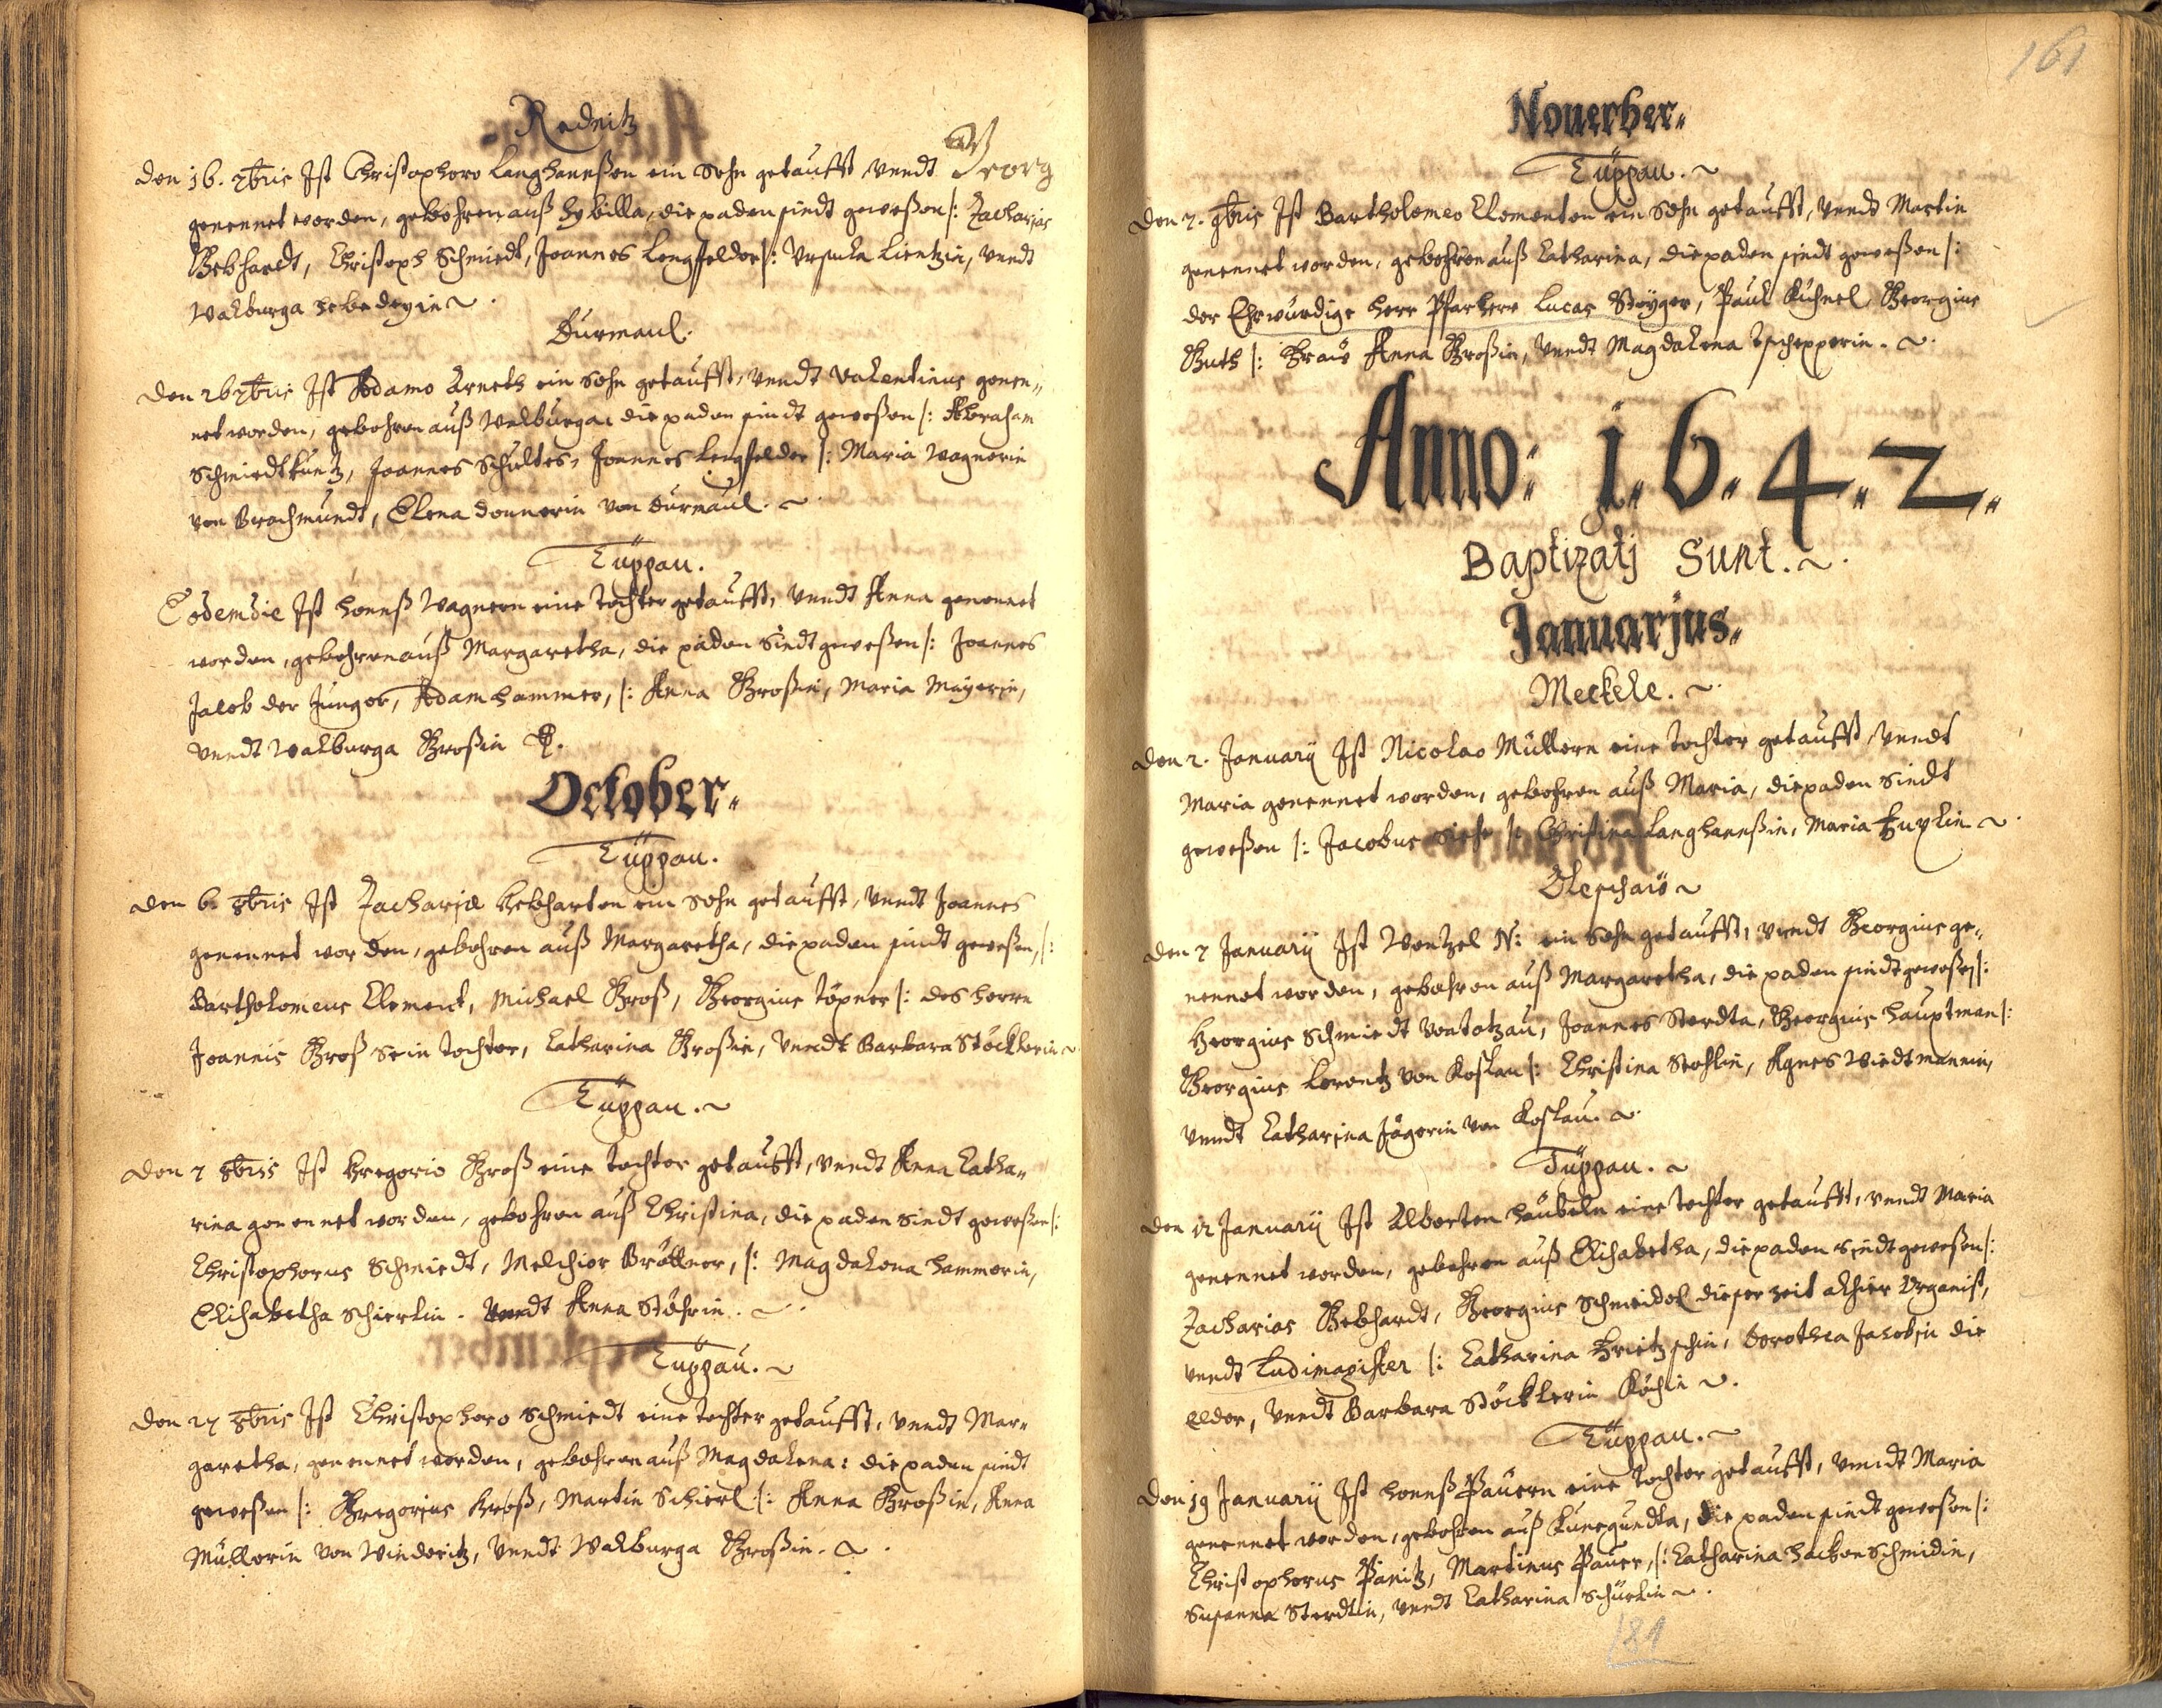 Rednitz
den 16. 7bris Ist Christophoro Langhanßen ein Sohn getaufft, vndt Georg
genennet worden, gebohren auß Sybilla, die paden sindt geweßen /: Zacharias
Gebhardt, Christoph Schmiedt, Joannes Lengfelder /: Ursula Lientzin, vndt
Walburga
Durmaul.
den 26 7bris Ist Adamo Arneth ein Sohn getaufft, vndt Valentinus genen-
net worden, gebohren auß Walburga, die paden sindt geweßen /: Abraham
Schmiedtkuntz, Joannes Schultes, Joannes Lengfelder /: Maria Wagnerin
von Brachmundt, Elena Donnerin von Durmaul. ~
Tüppau.
Eodem die Ist Hannß Wagnern eine Tochter getaufft, vndt Anna genennet
worden, gebohren auß Margaretha, die paden Sindt geweßen /: Joannes
Jacob der Junger, Adam Hammer, /: Anna Großin, Maria Mayerin,
vndt Walburga Großin
October
Tüppau.
den 6. 8bris Ist Zachariæ Gebharten ein Sohn getaufft, vndt Joannes
genennet worden, gebohren auß Margaretha, die paden sindt geweßen, /:
Bartholomeus Clement, Michael Groß, Georgius Töpner /: des Herrn
Joannis Groß sein Tochter, Catharina Großin, vndt Barbara Stöcklerin ~
Tüppau. ~
den 7 8bris Ist Gregorio Groß eine Tochter getaufft, vndt Anna Catha-
rina genennet worden, gebohren auß Christina, die paden Sindt geweßen /:
Christophorus Schmiedt, Melchior Bröttner, /: Magdalena Hammerin,
Elisabetha Schierlin. vndt Anna Stöhrin. ~
Tuppau. ~
den 27 8bris Ist Christophoro Schmiedt eine Tochter getaufft, vndt Mar-
garetha, genennet worden, gebohren auß Magdalena: die paden sindt
geweßen /: Gregorius Groß, Martin Schierl /: Anna Großin, Anna
Müllerin von Winderitz, vndt Walburga Großin. ~
161
Nouerber
Tüppau. ~
den 7. 9bris Ist Bartholomeo Clementen ein Sohn getaufft, vndt Martin
genennet worden, gebohren auß Catharina, die paden sindt geweßen /:
der Ehrwürdige Herr Pfarherr Lucas Steyger, Paul Kuhnel, Georgius
Guth /: Fraw Anna Großin, vndt Magdalena Tschepperin. ~
Anno: 1.6.4.2.
Baptizatj Sunt. ~
Januarjus
Meckele. ~
den 2. Januarij Ist Nicolao Müllern eine Tochter getaufft, vndt
Maria genennet worden, gebohren auß Maria, die paden Sindt
geweßen /: Jacobus /: Christina Langhanßin, Maria ~
Oleschau ~
den 7 Januarij Ist Wentzel N: ein Sohn getaufft, vndt Georgius ge-
nennet worden, gebohren auß Margaretha, die paden sindt geweßen /:
Georgius Schmiedt von Totzau, Joannes Sterdta, Georgius Hauptman /:
Georgius Lorentz von Koslau /: Christina Stohlin, Agnes Wiedtmannin,
vndt Catharina Jägerin von Koslau. ~
Tüppau. ~
den 12 Januarij Ist Alberten Häubeln eine Tochter getaufft, vndt Maria
genennet worden, gebohren auß Elisabetha, die paden Sindt geweßen /:
Zacharias Gebhardt, Georgius Schmeidel dieser zeit alhier Organist,
vndt Ludimagister /: Catharina Fritzschin, Dorothea Jacobin die
Elder, vndt Barbara Stöcklerin Köchin ~.
Tüppau. ~
den 19 Januarij Ist Hannß Pauern eine Tochter getaufft, vndt Maria
genennet worden, gebohren auß Kunegundta, die paden sindt geweßen /:
Christophorus Panitz, Martinus Pauer, /: Catharina Hackenschmidin,
Susanna Sterdtin, vndt Catharina Schürlin ~.
181